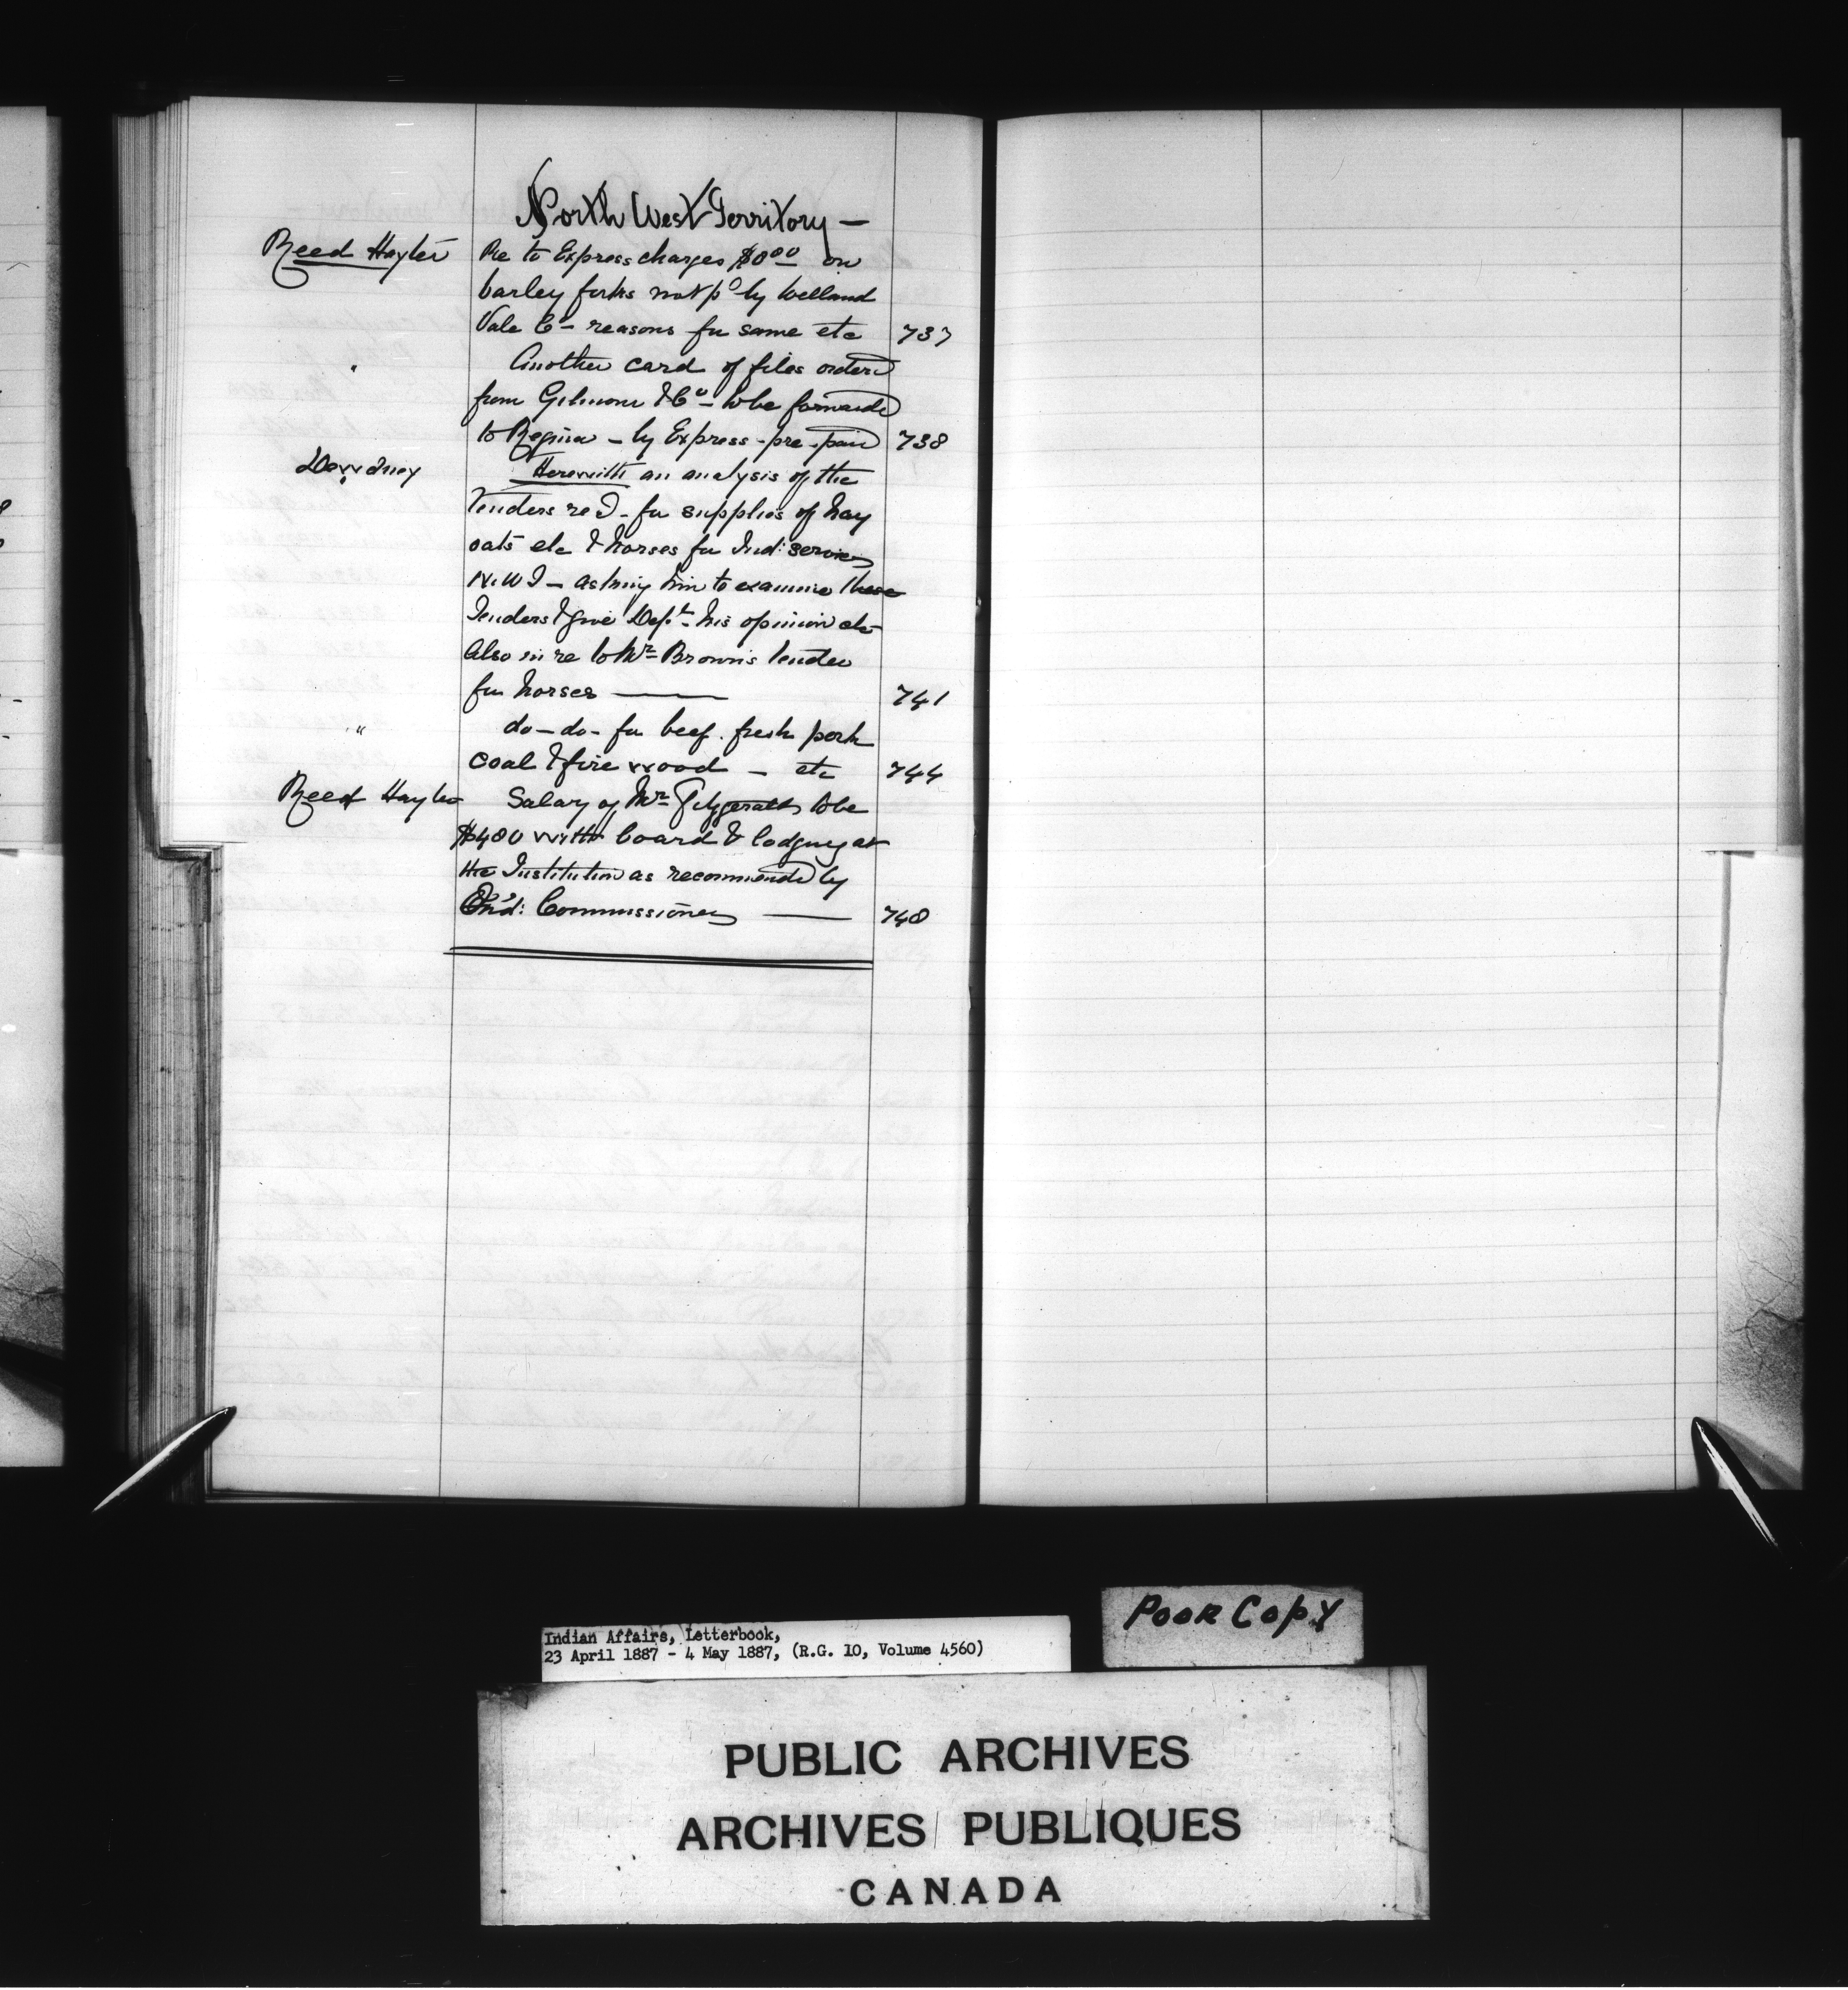 North West Territory —
Reed Hayter Re to Express charges $8.00 on
barley forks not pd by Welland
Vale Co - reasons for same etc 737
" Another card of files ordered
from Gilmour & Co - to be forwarded
to Regina - by Express - pre-paid 738
Dewdney Herewith an analysis of the
Tenders recd - for supplies of hay
oats etc & horses for Ind: service
N.W.T - asking him to examine these
Tenders & give Dept. his opinion etc
Also in re to Mr Brown's tender
for horses — 741
" do - do - for beef. fresh pork
coal & fire wood - etc 744
Reed Hayter Salary of Mr Fitzgerald to be
$480 with board & lodging at
the Institution as recommended by
Ind: Commissioner — 748
Indian Affairs, Letterbook,
23 April 1887 - 4 May 1887, (R.G. 10, Volume 4560)
Poor Copy
PUBLIC ARCHIVES
ARCHIVES PUBLIQUES
CANADA